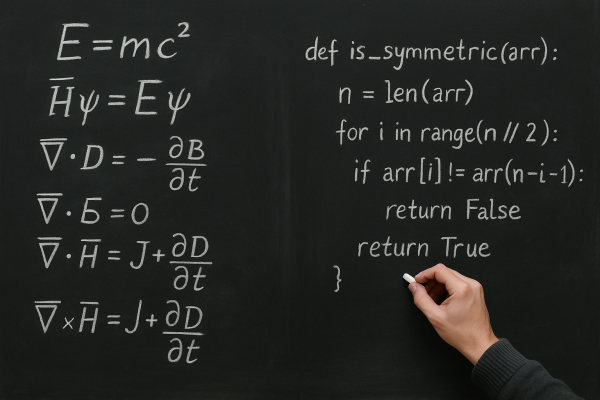 E = mc²
H̅ψ = Eψ
∇̅ · D = − ∂B/∂t
∇̅ · Б = 0
∇̅ · H̅ = J + ∂D/∂t
∇̅ × H̅ = J + ∂D/∂t
def is_symmetric(arr):
n = len(arr)
for i in range(n // 2):
if arr[i] != arr(n-i-1):
return False
return True
}